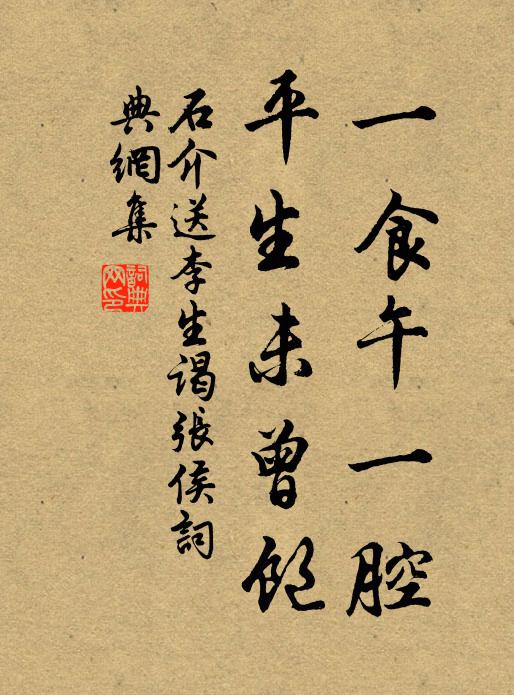 一食午一腔
平生未曾飽
石介送李生謁張侯詞
典網集
詞典
网印